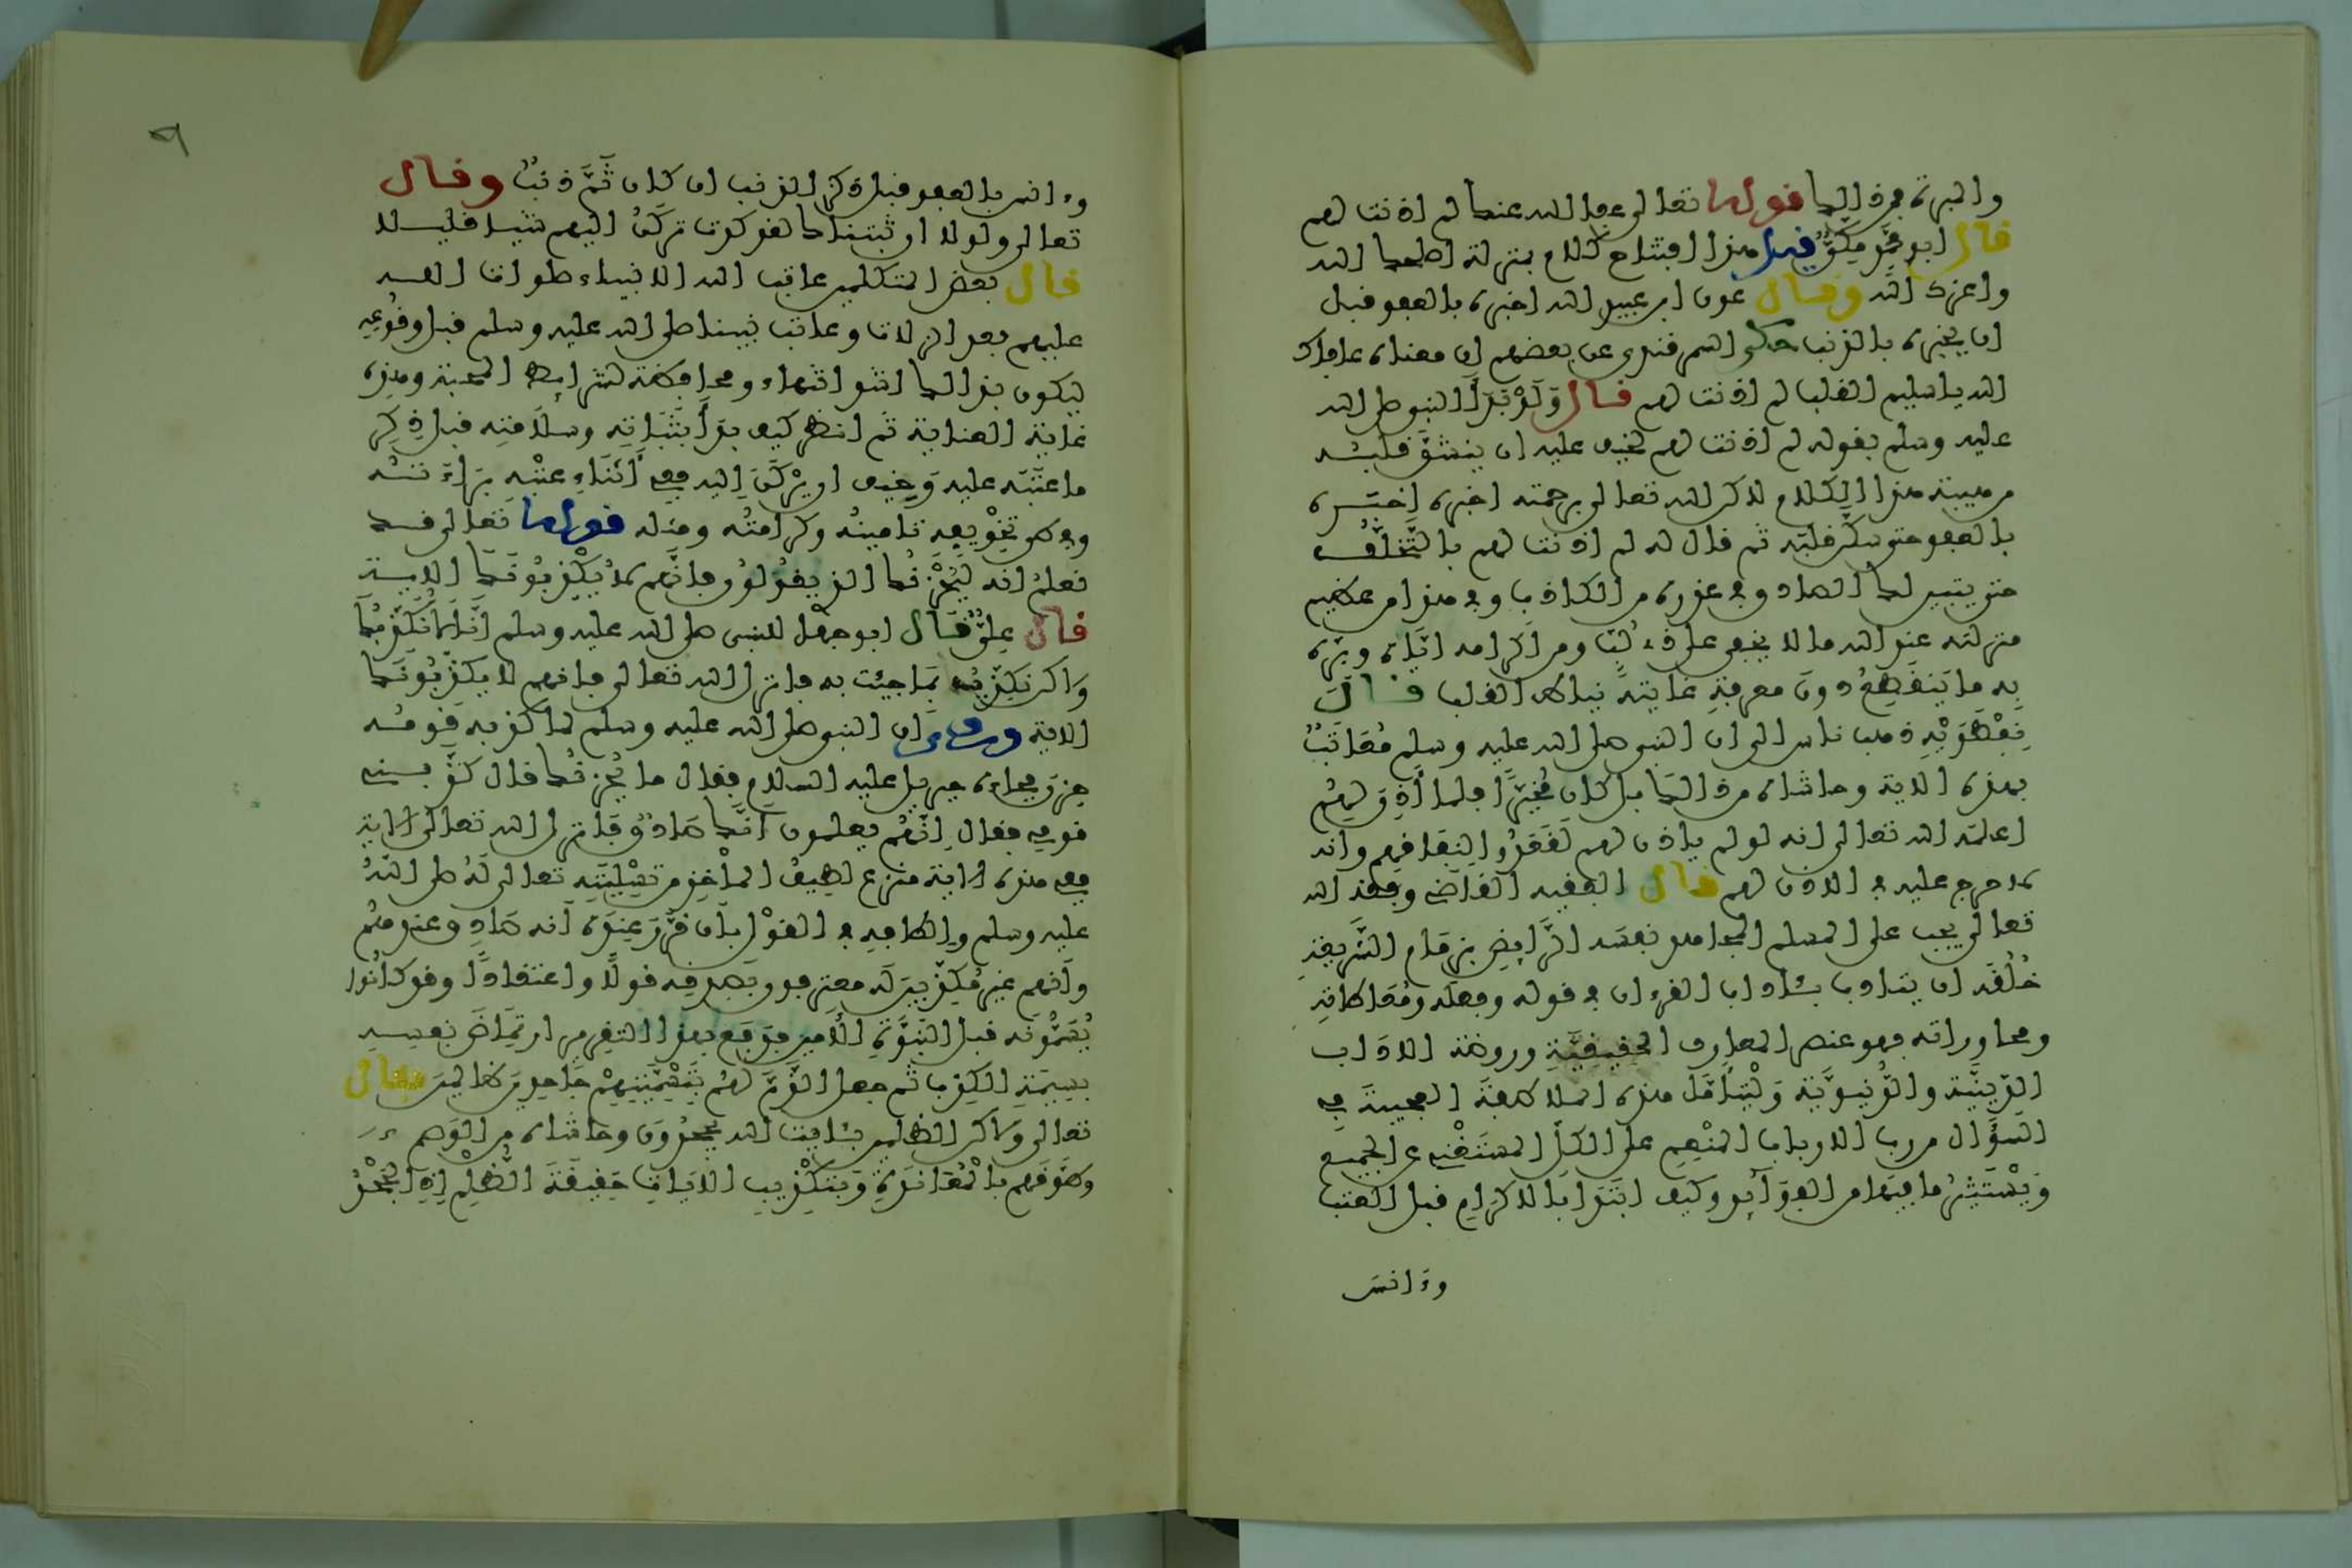 والمبرة فمن ذالك قوله تعالى عفا الله عنك لم اذنت لهم
قال ابو محمد مكي قيل هذا افتتاح كلام بمنزلة اصلحك الله
واعزك الله وقال عون ابن عبد الله اخبره بالعفو قبل
ان يخبره بالذنب حكى السمرقندي عن بعضهم ان معناه عافاك
الله يا سليم القلب لم اذنت لهم قال وَلَوْ بَدَأ النبي صلى الله
عليه وسلم بقوله لم اذنت لهم لخيف عليه ان ينشقّ قلبه
من هيبة هذا الكلام لاكن الله تعالى برحمته اخبره
بالعفو حتى سكن قلبه ثم قال له لم اذنت لهم بالتَّخلُّف
حتى يتبين لك الصادق في عذره من الكاذب وفي هذا من عظيم
منزلته عند الله ما لا يخفى على ذي لُبّ ومن اكرامه ايّاه وبرّه
به ما يَنقطِعُ دون معرفةِ غايتهِ نياط القلب قال
نِفْطَوَيْهِ ذهب ناس الى ان النبي صلى الله عليه وسلم مُعَاتَبٌ
بهذه الاية وحاشاه من ذالك بل كان مُخَيَّرًا فلما أَذِنَ لهُم
اعلمه الله تعالى انه لو لم ياذن لهم لَقَعَدُوا لِنِفَاقِهِم وانه
لا حرج عليه في الاذن لهم قال الفقيه القاضي وفقه الله
تعالى يجب على المسلم المجاهد نفسَه الرَّايِضِ بزمام الشريعةِ
خُلُقَه ان يتادب بئاداب القرءان في قوله وفعله ومُعَاطاتِه
ومحاوراته فهو عنصر المعارف الحقيقيَّةِ وروضة الاداب
الدّينيَّة والدُّنيويَّة وَلْيَتَأَمَّل هذه الملاطفة العجيبة في
السؤال من رب الارباب المُنْعِم على الكلّ المستَغْنِي عن الجميع
وَيَسْتَثِير ما فيها من الفوائد وكيف ابتَدَأَ بالاكرام قبل العتب
وءانس
وءانس بالعفو قبل ذكر الذنب ان كان ثَمَّ ذنبٌ وقال
تعالى ولولا ان ثبتناك لقد كدت تركَنُ اليهم شيئا قليلا
قال بعض المتكلمين عاتب الله الانبياء صلوات الله
عليهم بعد الزلات وعاتب نبينا صلى الله عليه وسلم قبل وقُوعِه
ليكون بذالك اشد انتهاء ومحافظة لشرايط المحبة وهذه
غاية العناية ثم انظر كيف بَدَأ بثَبَاتِه وسلامتِه قبل ذِكر
ما عتَبَه عليه وَخِيف ان يَرْكَنَ اليه ففي أَثْنَاءِ عتْبِه بَرَاءَتُه
وفي طي تخْوِيفِه تامينُه وكرامَتُه ومثله قوله تعالى قد
نَعلَمُ انه ليُحْزِنُك الذي يقولون فانَّهم لا يُكْذِبُونَك الاية
قال عليٌّ قال ابو جهل للنبي صلى الله عليه وسلم انَّا لا نُكَذِّبُك
ولاكن نكذّب بمَا جئت به فانزل الله تعالى فانهم لا يكذّبُونَك
الاية وروي ان النبي صلى الله عليه وسلم لما كذبه قومُه
حزن فجاءه جبريل عليه السلام فقال ما يُحزنُك قال كذّبني
قومي فقال إنَّهُم يعلمون انَّك صادقٌ فانزل الله تعالى الاية
ففي هذه الاية منزع لطيفُ المأْخذِ من تَسْلِيَتِه تعالى لَهُ صلى اللهُ
عليه وسلم وإلطافِه في القوْل بان قرَّرَ عندَه أنه صادق عندهم
وانهم غير مُكذّبين له معترفون بصدقه قولًا واعتقادًا وقد كانُوا
يُسَمُّونه قبل النُّبُوَّةِ الأَمين فدفع بهذا التقرير ارتِمَاضَ نفسِهِ
بسِمَةِ الكذِب ثم جعل الذَّمَّ لهُم بتَسْمِيَتِهِمْ جَاحِدِينَ ظالمينَ فقال
تعالى ولاكن الظالمين بئايت الله يجحدُونَ وحاشاه من الوَصم
وطوَّقَهم بالمُعَانَدَةِ وبتكْذِيبِ الاياتِ حَقِيقَةَ الظُّلْم إذِ الجَحْدُ